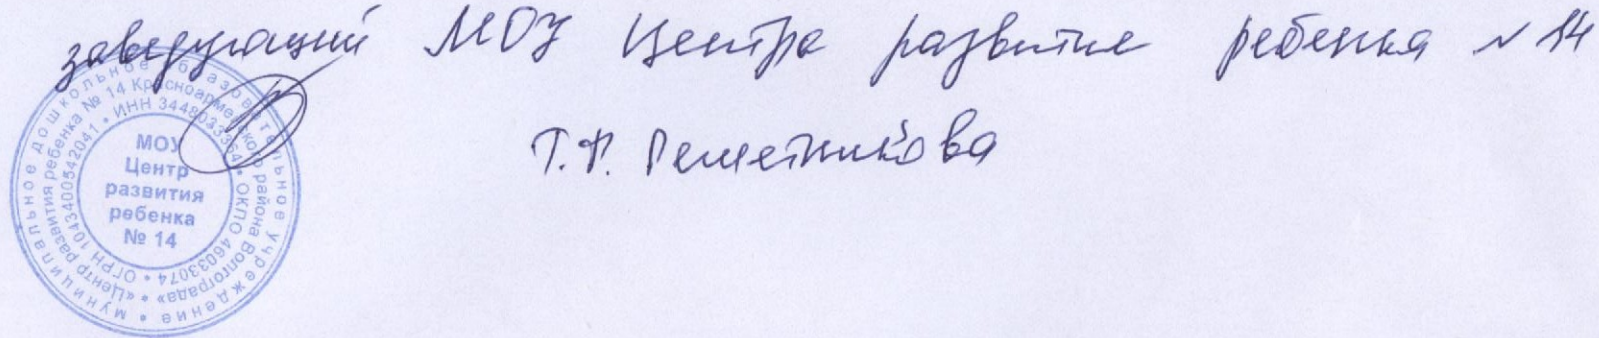 заведующий МОУ Центра развитие ребенка N 14
Т.Ф. Решетникова
муниципальное дошкольное образовательное учреждение
«Центр развития ребенка № 14 Красноармейского района Волгограда»
ОГРН 1043400542041 • ИНН 3448033354 • ОКПО 46033074
МОУ
Центр
развития
ребенка
№ 14